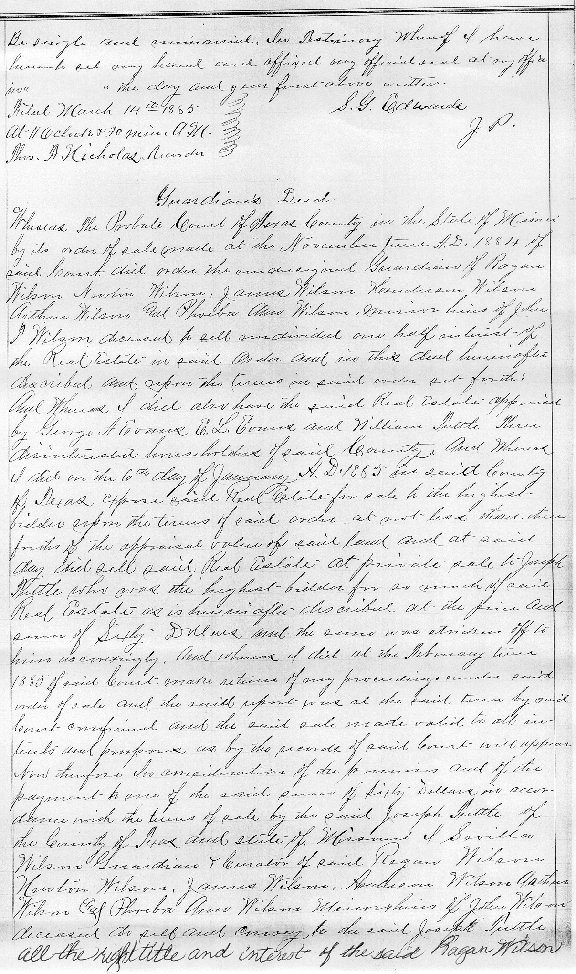 Be single and unmarried. In Testimony Whereof I have
hereunto set my hand and affixed my official seal at my office
in " the day and year first above written.
Filed March 14th 1885 S. G. Edwards
At 11 oclock & 40 min. A.M. J.P.
Thos. B Nicholas, Recorder
Guardian's Deed
Whereas The Probate Court of Texas County in the State of Missouri
by its order of sale made at the November Term A.D. 1884 of
said Court did order the undersigned Guardian of Ragan
Wilson Newton Wilson, James Wilson Henderson Wilson
Arthur Wilson and Phoeba Ann Wilson, minor heirs of John
Wilson deceased to sell undivided one half interest of
the Real Estate in said order and in this deed hereinafter
described and upon the terms in said order set forth:
And Whereas I did also have the said Real Estate appraised
by George A Evans E. L. Evans and William Tuttle three
disinterested householders of said County, And Whereas
I did on the day of January A.D. 1885 in said County
of Texas expose said Real Estate for sale to the highest
bidder upon the terms of said order at not less than three
forths of the appraised value of said land and at said
day did sell said Real Estate at private sale to Joseph
Tuttle who was the highest bidder for so much of said
Real Estate as is hereinafter described at the price and
sum of Sixty Dollars and the same was striken off to
him accordingly. And whereas I did at the February term
1885 of said Court make return of my proceedings under said
order of sale and the said report was at the said term by said
Court confirmed and the said sale made valid to all in-
tents and purposes as by the records of said Court will appear
Now therefore In consideration of the premises and of the
payment to me of the said sum of Sixty Dollars in accor-
dance with the terms of sale by the said Joseph Tuttle of
the County of Texas and state of Missouri I Savilla
Wilson Guardian & Curator of said Ragan Wilson
Newton Wilson, James Wilson, Henderson Wilson Arthur
Wilson and Phoeba Ann Wilson Minor heirs of John Wilson
deceased do sell and convey to the said Joseph Tuttle
all the right title and interest of the said Ragan Wilson